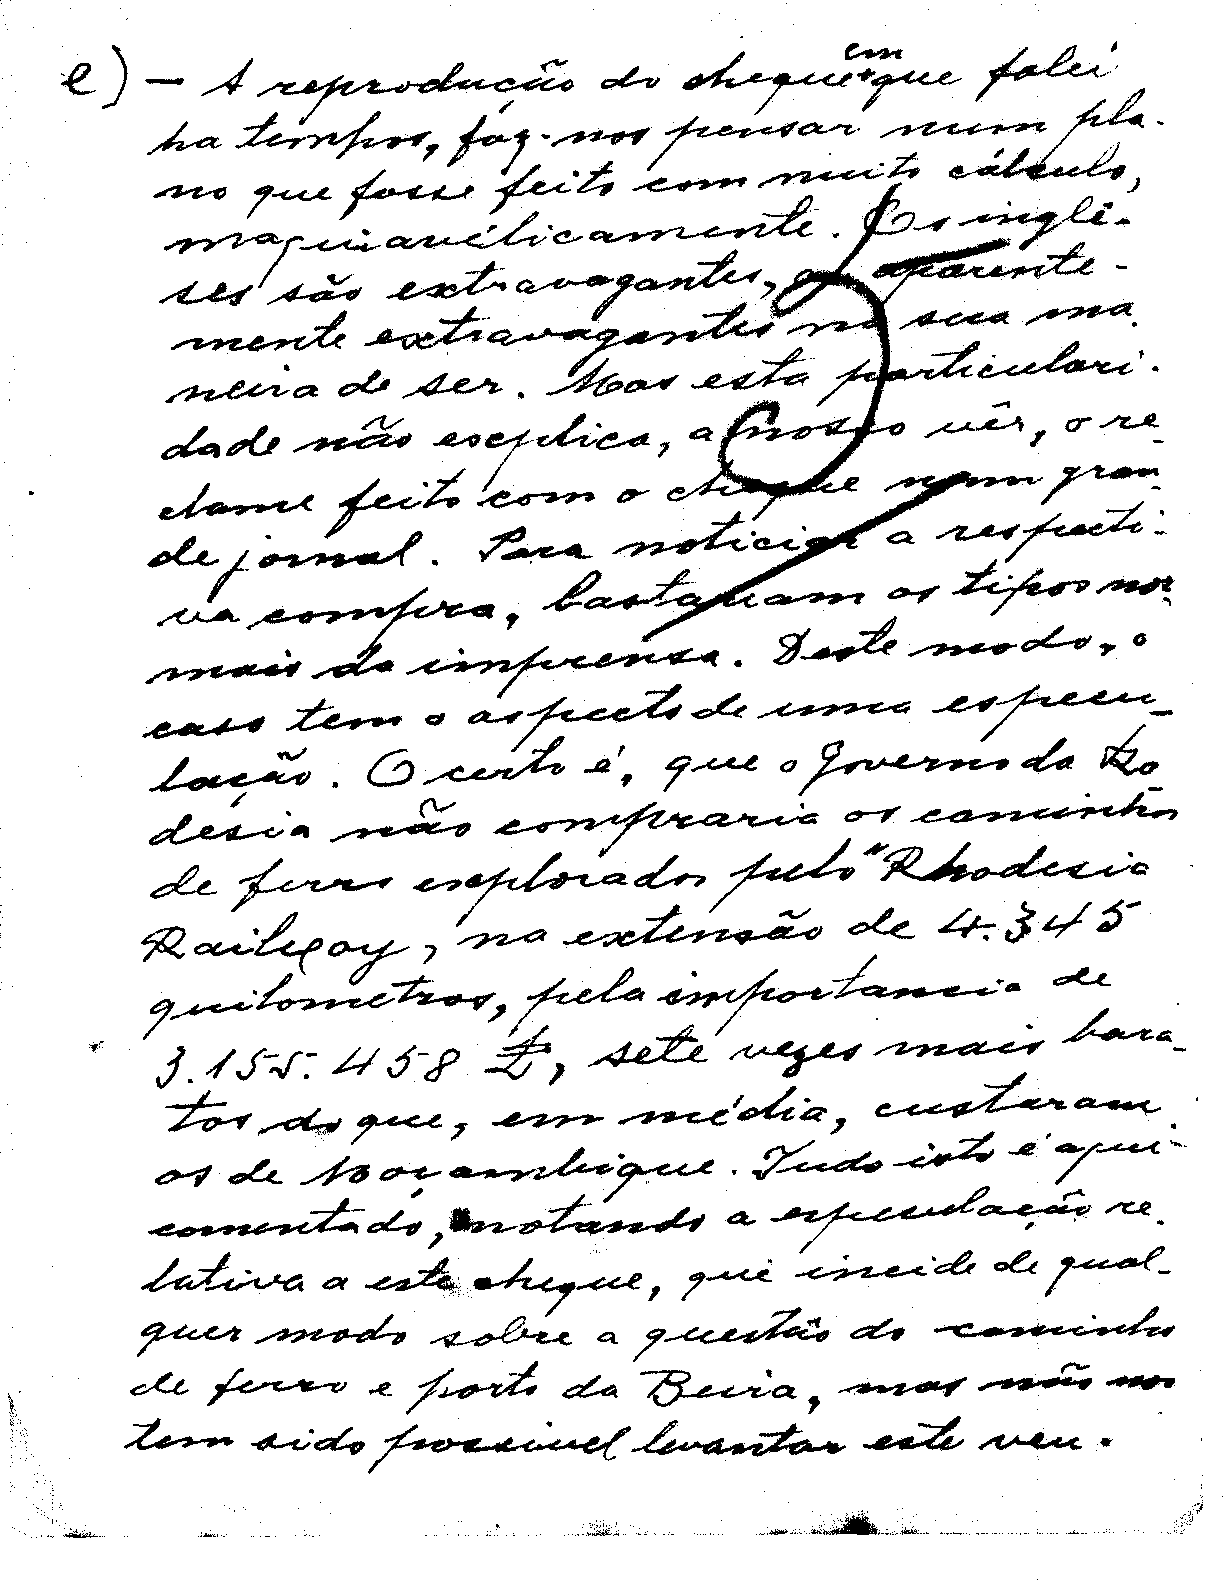 e) — A reprodução do cheque em que falei
ha tempos, faz-nos pensar num pla-
no que fosse feito com muito cálculo,
maquiavélicamente. Os inglê-
ses são extravagantes, ou aparente-
mente extravagantes na sua ma-
neira de ser. Mas esta particulari-
dade não explica, a nosso vêr, o re-
clame feito com o cheque num gran-
de jornal. Para noticiar a respecti-
va compra, bastavam os tipos nor-
mais da imprensa. Deste modo, o
caso tem o aspecto de uma especu-
lação. O certo é, que o Governo da Ro-
desia não compraria os caminhos
de ferro explorados pelo "Rhodesia
Railway, na extensão de 4.345
quilometros, pela importancia de
3.155.458 £, sete vezes mais bara-
tos do que, em média, custaram
os de Moçambique. Tudo isto é aqui
comentado, notando a especulação re-
lativa a este cheque, que incide de qual-
quer modo sobre a questão do caminho
de ferro e porto da Beira, mas não nos
tem sido possivel levantar este veu.